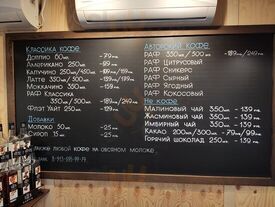 Классика кофе
Доппио 50мл. -79р.
Американо 250мл. -89р.
Капучино 250мл/450мл -119/159р.
Латте 350мл/500мл -119/159р.
Моккачино 350мл. -159р.
Раф Классика
350мл/500 мл -189/249р.
Флэт Уайт 250мл. -129р.
Добавки
Молоко 50мл. -25р.
Сироп 15мл. -25р.
Авторский кофе
Раф 350мл/500мл -189р/249р.
Раф Цитрусовый
Раф Сникерс
Раф Сырный
Раф Ягодный
Раф Кокосовый
Не кофе
Малиновый чай 350мл. -139р.
Жасминовый чай 350мл. -139р.
Имбирный чай 350мл. -139р.
Какао 200мл/300мл -79р/99р.
Горячий шоколад 250мл. -139р.
Также любой кофе на овсяном молоке